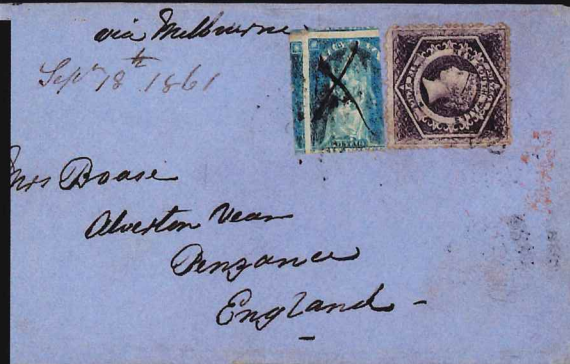 via Melbourne
Sept 18th 1861
Mrs Boase
Alverton Vean
Penzance
England -
POSTAGE